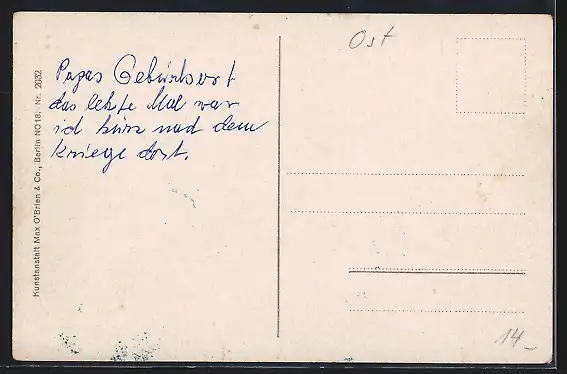 Papas Gebürtsort
das letzte Mal war
ich kürz nach dem
Kriege dort.
Ost
14.–
Kunstanstalt Max O'Brien & Co., Berlin NO18. Nr. 2632